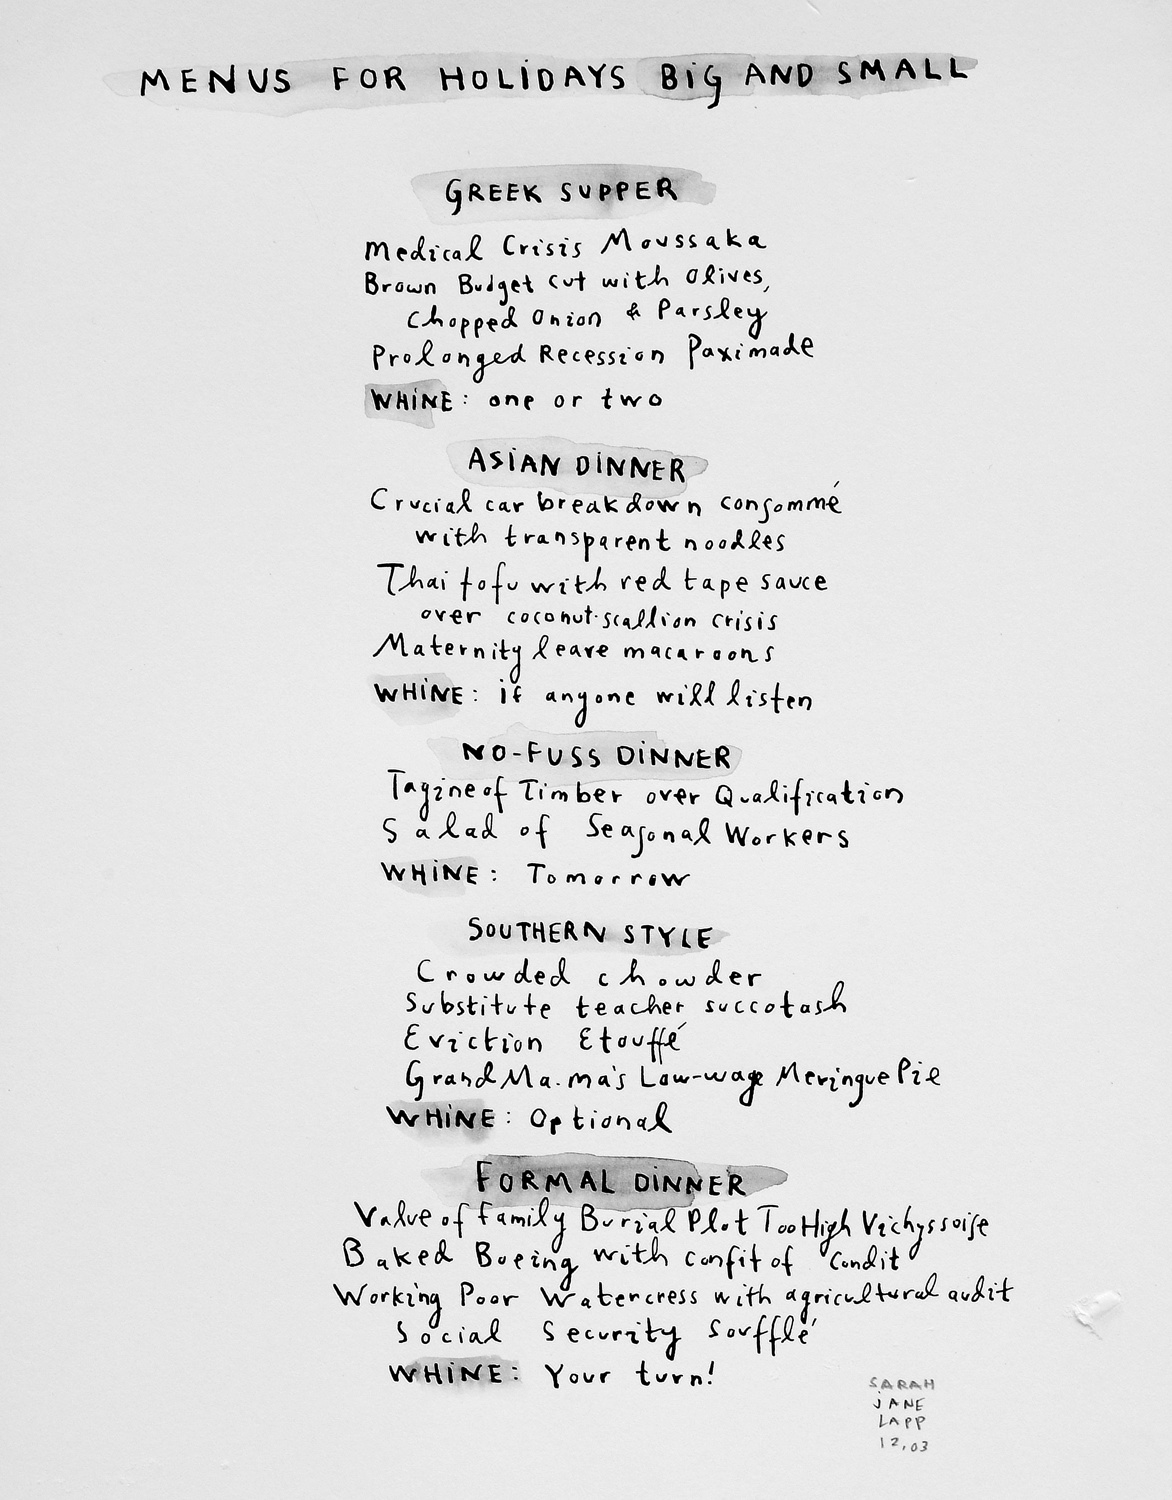 MENUS FOR HOLIDAYS BIG AND SMALL
GREEK SUPPER
Medical Crisis Moussaka
Brown Budget cut with Olives,
Chopped Onion & Parsley
Prolonged Recession Paximade
WHINE: one or two
ASIAN DINNER
Crucial car breakdown consommé
with transparent noodles
Thai tofu with red tape sauce
over coconut-scallion crisis
Maternity leave macaroons
WHINE: if anyone will listen
NO-FUSS DINNER
Tagine of Timber over Qualification
Salad of Seasonal Workers
WHINE: Tomorrow
SOUTHERN STYLE
Crowded chowder
Substitute teacher succotash
Eviction Etouffé
GrandMa-ma's Low-wage Meringue Pie
WHINE: Optional
FORMAL DINNER
Value of Family Burial Plot Too High Vichyssoise
Baked Boeing with confit of Condit
Working Poor Watercress with agricultural audit
Social Security Soufflé
WHINE: Your turn!
SARAH
JANE
LAPP
12.03